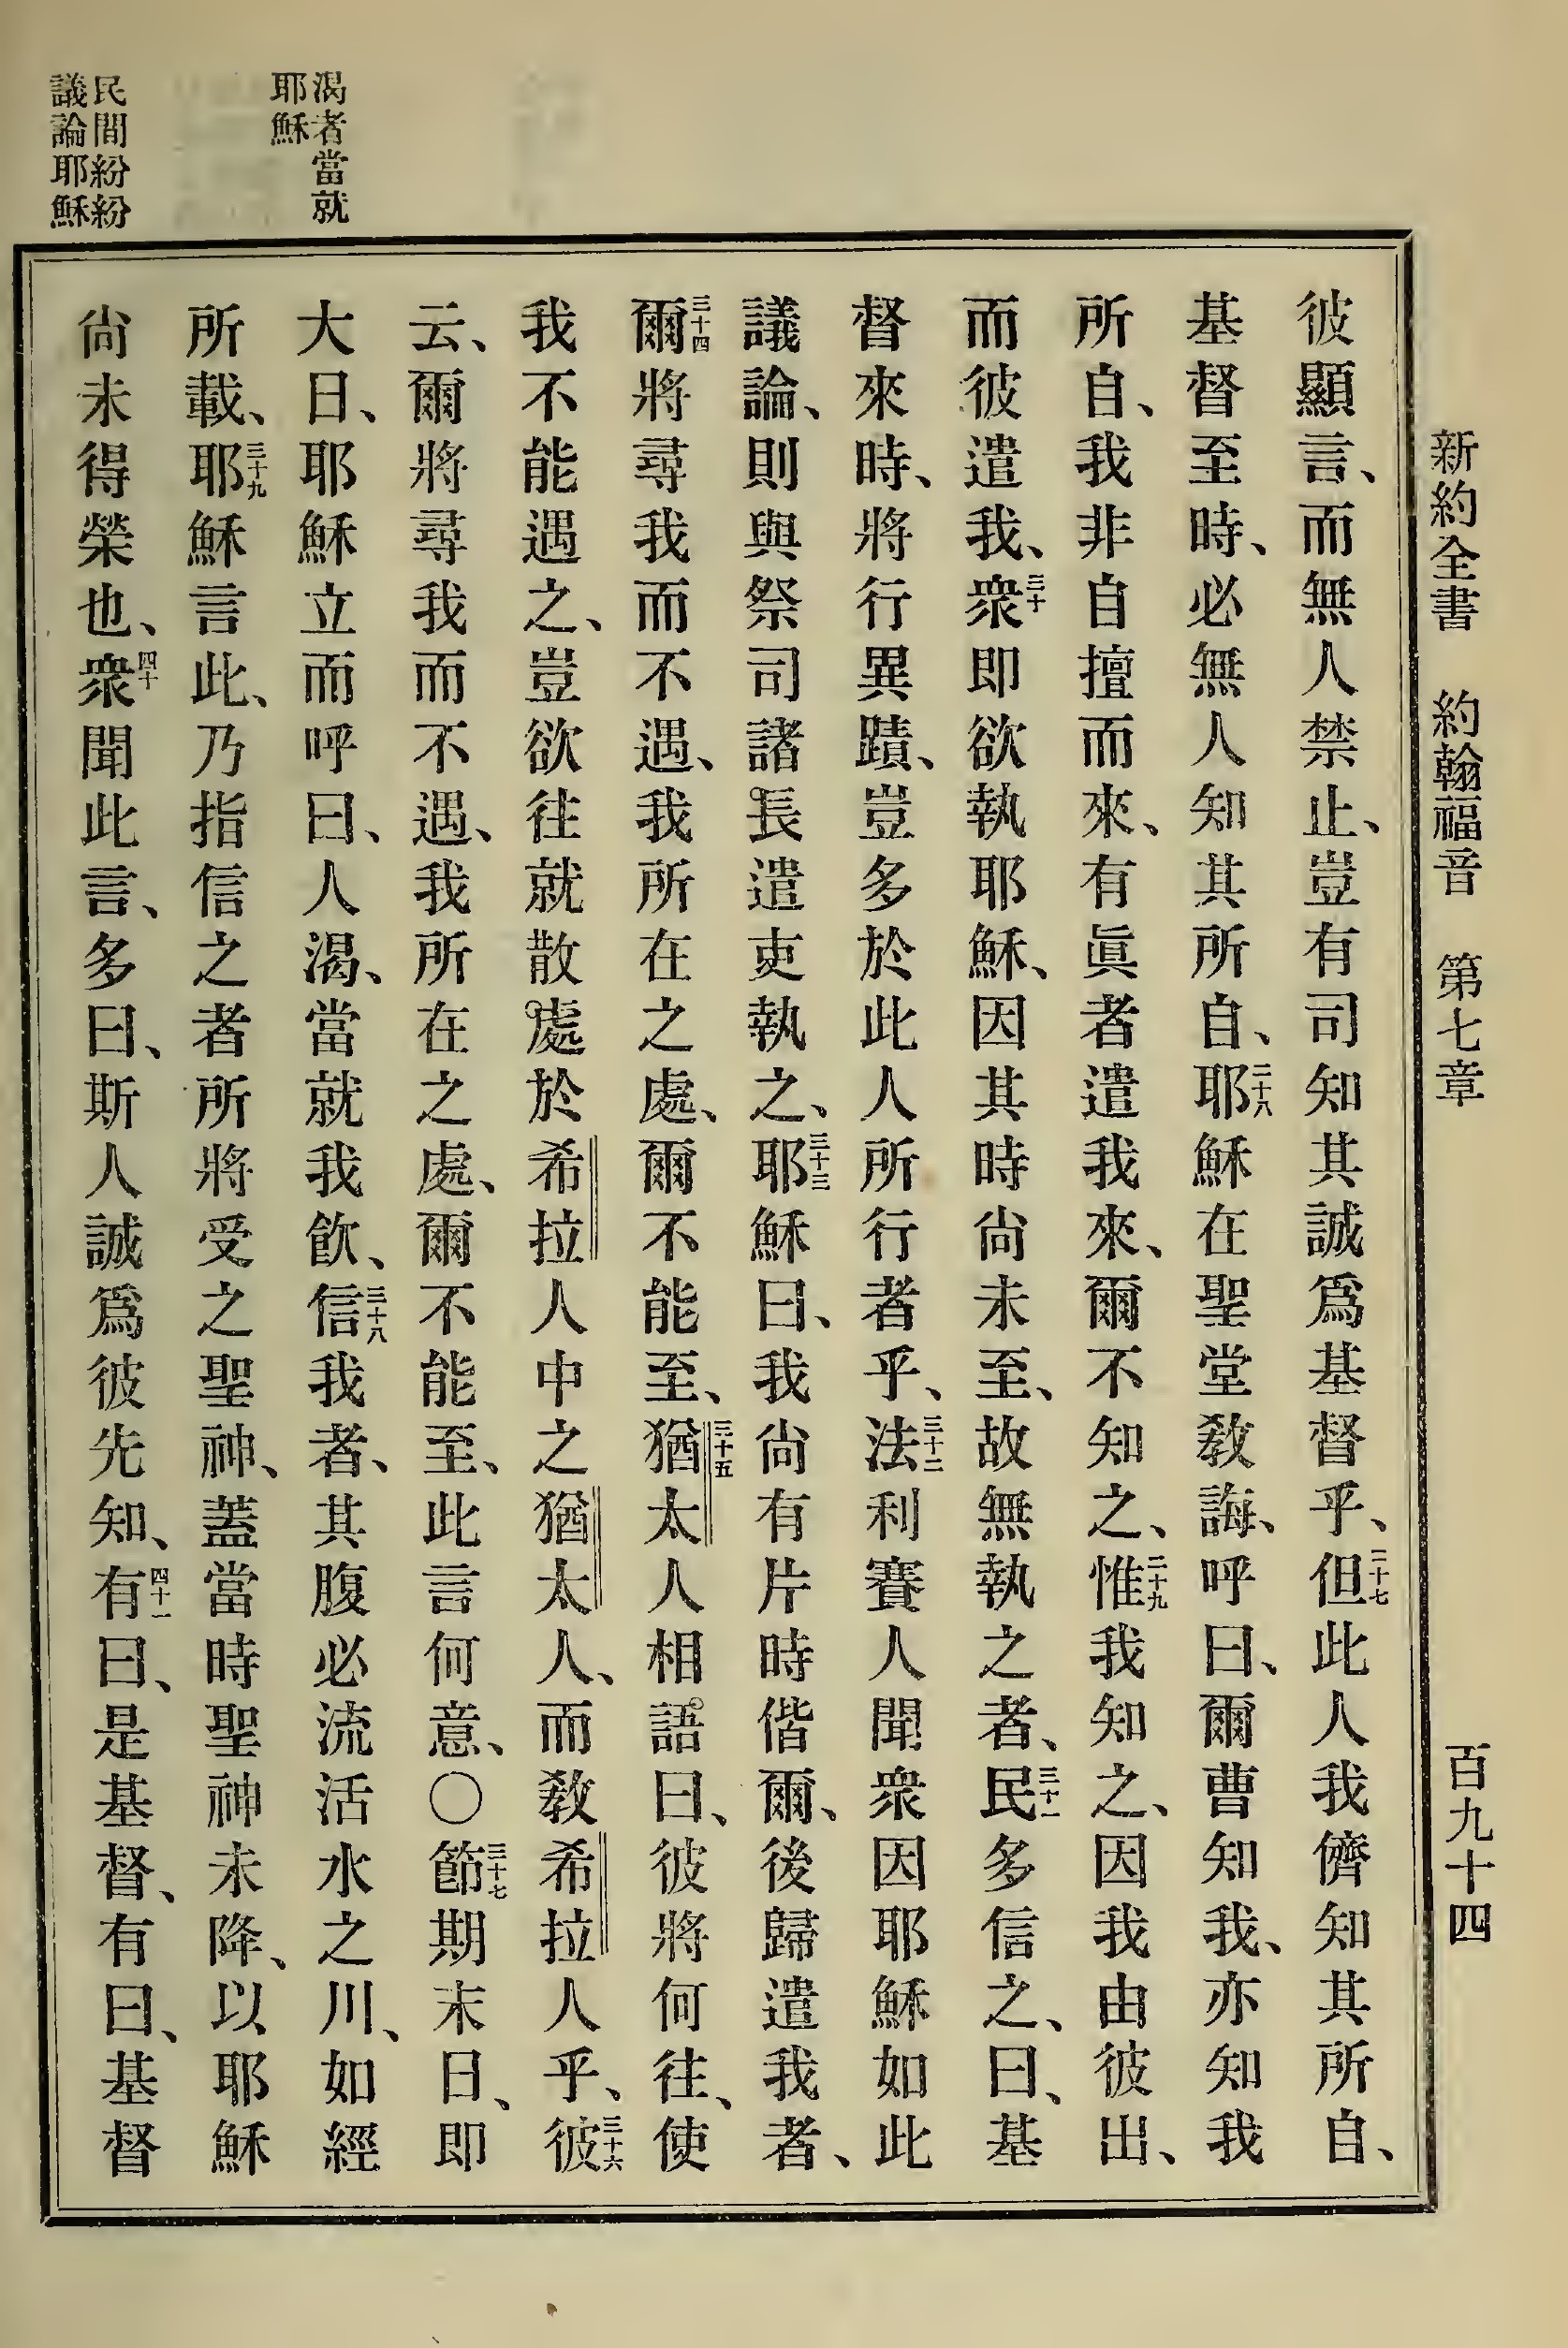 新約全書 約翰福音 第七章 百九十四
彼顯言、而無人禁止、豈有司知其誠爲基督乎、二十七但此人我儕知其所自、
基督至時、必無人知其所自、二十八耶穌在聖堂敎誨、呼曰、爾曹知我、亦知我
所自、我非自擅而來、有眞者遣我來、爾不知之、二十九惟我知之、因我由彼出、
而彼遣我、三十衆即欲執耶穌、因其時尙未至、故無執之者、三十一民多信之、曰、基
督來時、將行異蹟、豈多於此人所行者乎、三十二法利賽人聞衆因耶穌如此
議論、則與祭司諸長遣吏執之、三十三耶穌曰、我尙有片時偕爾、後歸遣我者、
三十四爾將尋我而不遇、我所在之處、爾不能至、三十五猶太人相語曰、彼將何往、使
我不能遇之、豈欲往就散處於希拉人中之猶太人、而敎希拉人乎、三十六彼
云、爾將尋我而不遇、我所在之處、爾不能至、此言何意、〇三十七節期末日、即
大日、耶穌立而呼曰、人渴、當就我飮、三十八信我者、其腹必流活水之川、如經
所載、三十九耶穌言此、乃指信之者所將受之聖神、蓋當時聖神未降、以耶穌
尙未得榮也、四十衆聞此言、多曰、斯人誠爲彼先知、四十一有曰、是基督、有曰、基督
渴者當就
耶穌
民間紛紛
議論耶穌